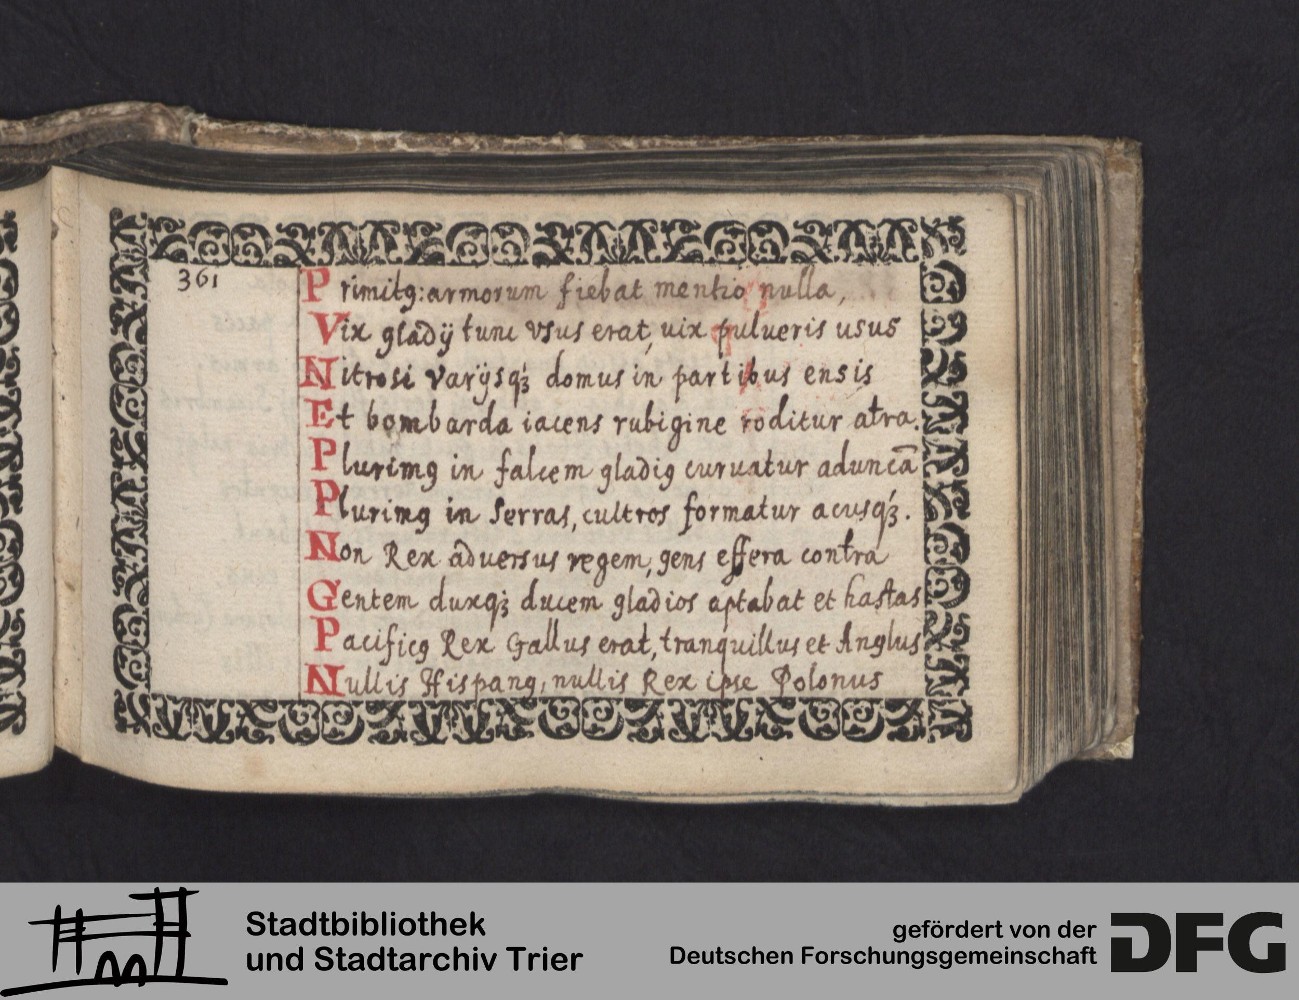 361
Primitꝰ: armorum fiebat mentio nulla,
Vix gladÿ tunc vsus erat, uix pulueris usus
Nitrosi varÿsqꝫ domus in partibus ensis
Et bombarda iacens rubigine roditur atra.
Plurimꝰ in falcem gladiꝰ curuatur aduncā
Plurimꝰ in serras, cultros formatur acusqꝫ.
Non Rex aduersus regem, gens effera contra
Gentem duxqꝫ ducem gladios aptabat et hastas
Pacificꝰ Rex Gallus erat, tranquillus et Anglus
Nullis Hispanꝰ, nullis Rex ipse Polonus
Stadtbibliothek
und Stadtarchiv Trier
gefördert von der
Deutschen Forschungsgemeinschaft
DFG